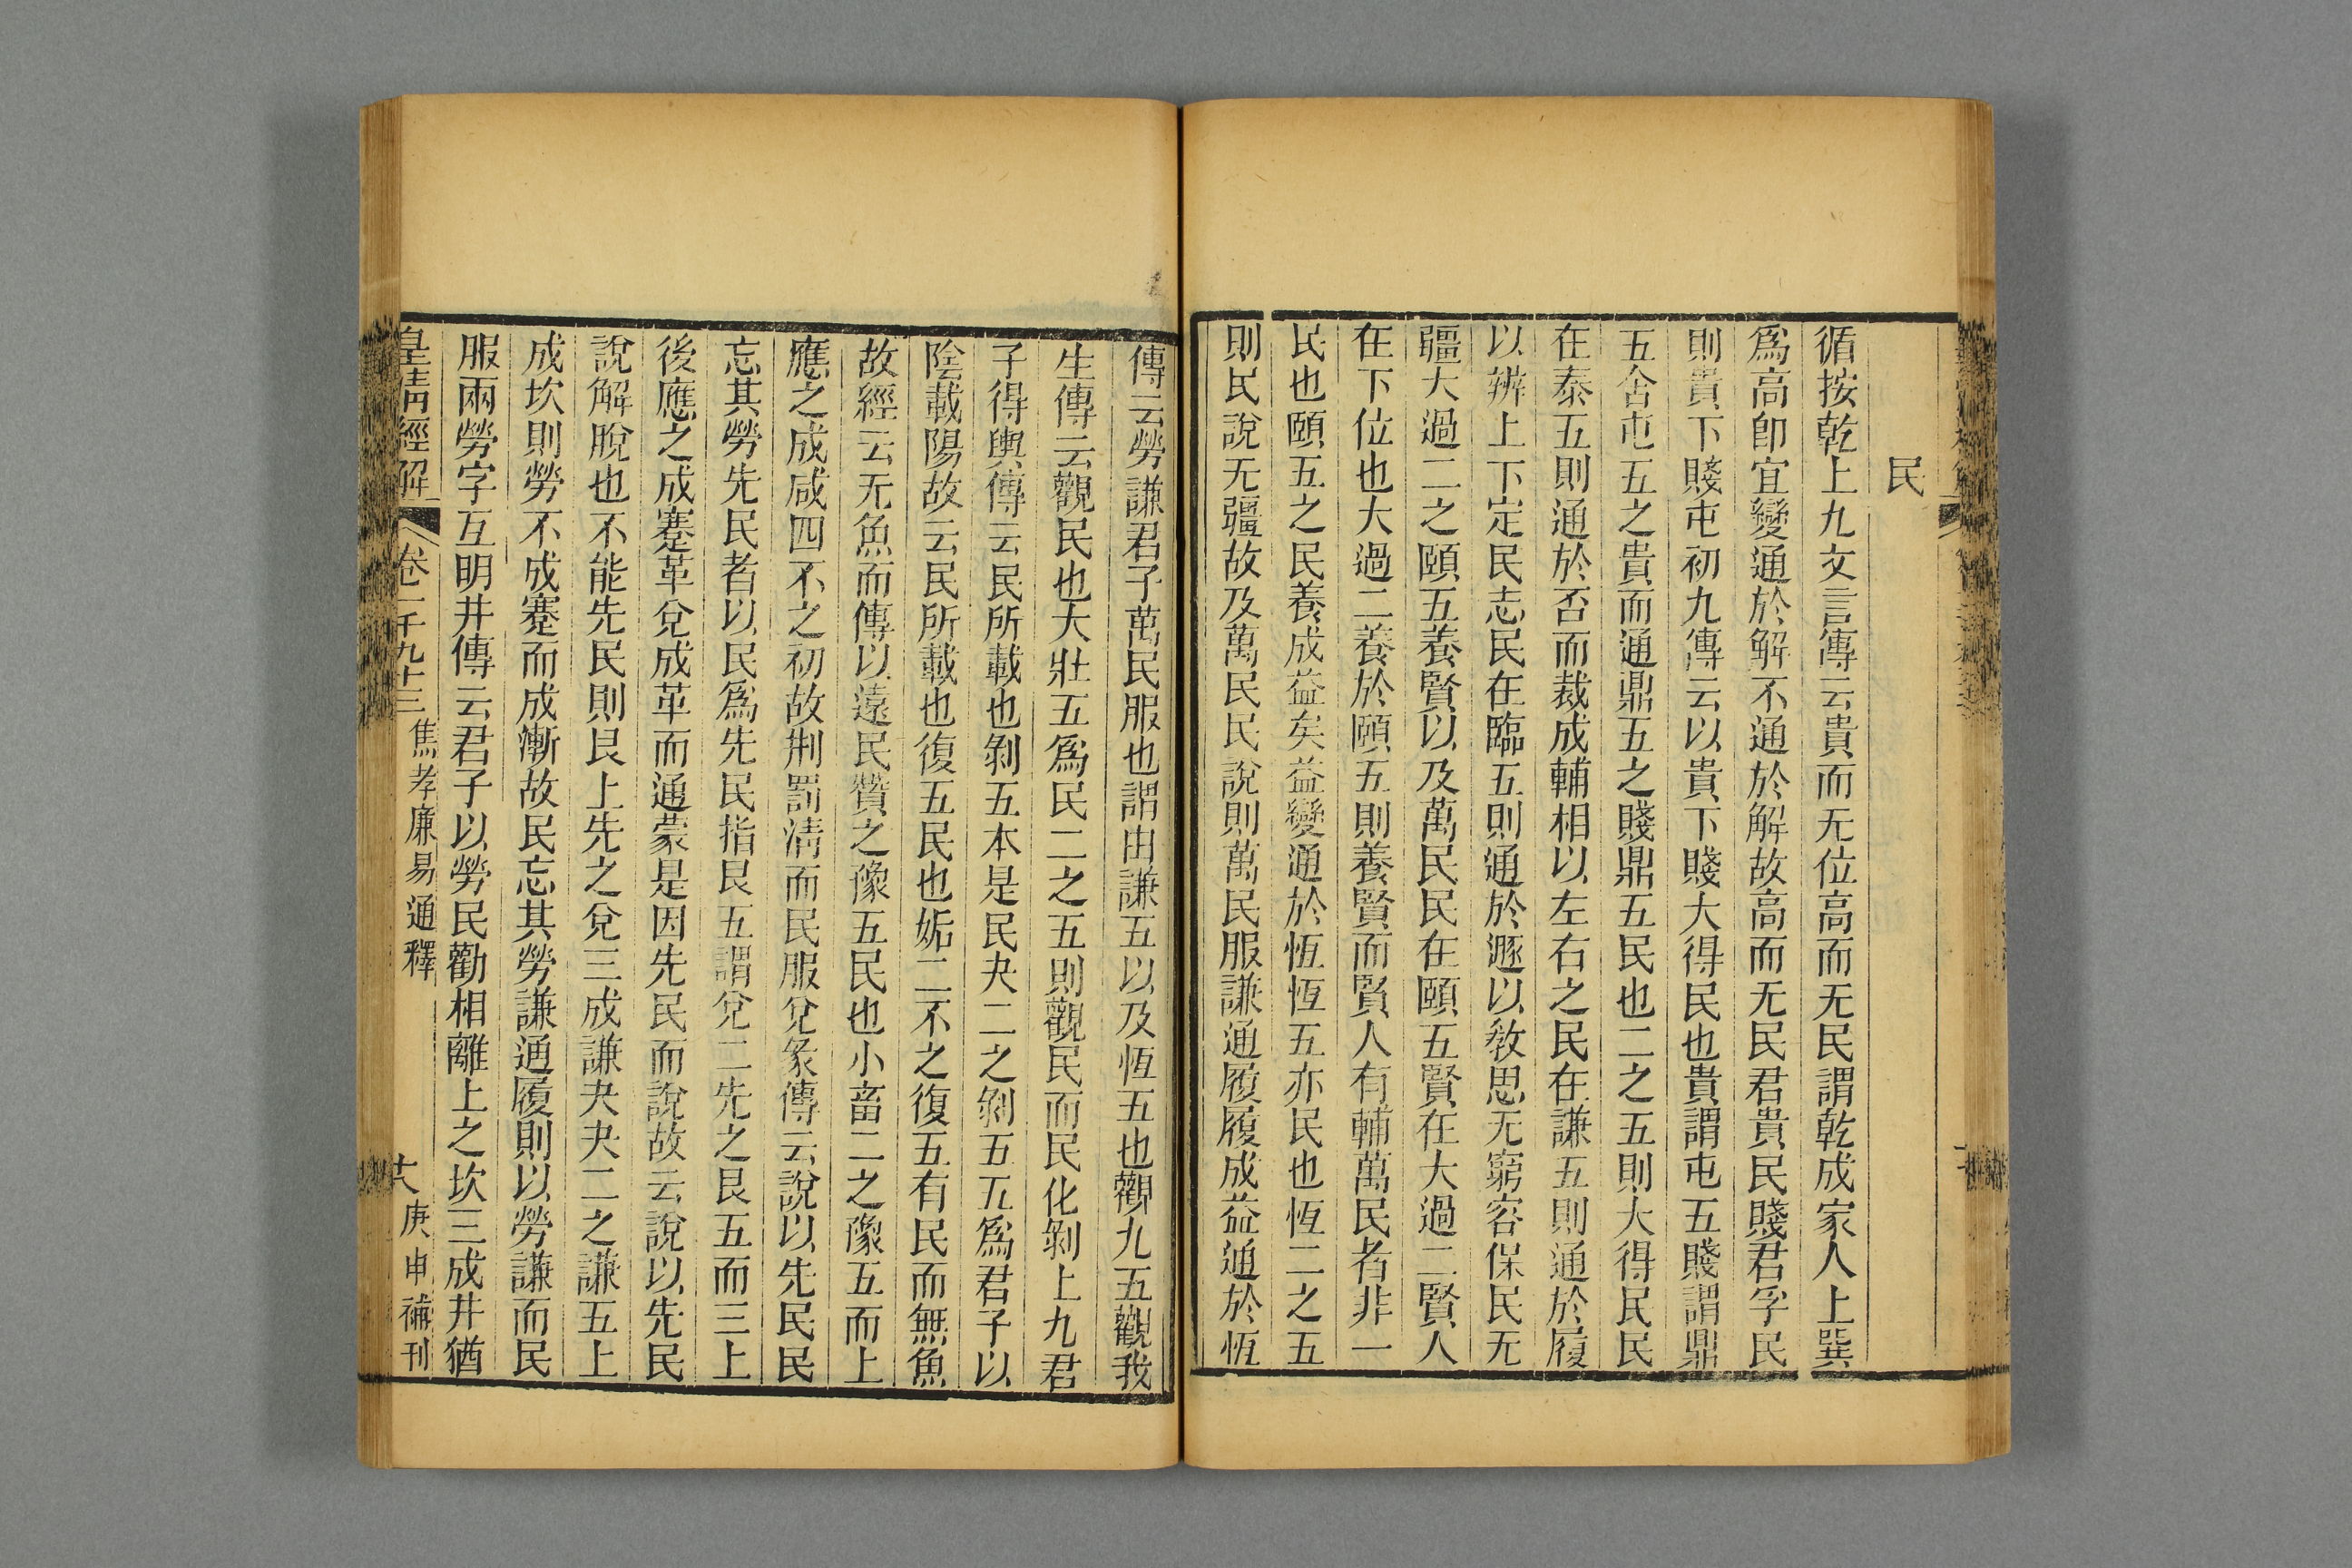 民
循按乾上九文言傳云貴而无位高而无民謂乾成家人上巽
爲高卽宜變通於解不通於解故高而无民君貴民賤君孚民
則貴下賤屯初九傳云以貴下賤大得民也貴謂屯五賤謂鼎
五舍屯五之貴而通鼎五之賤鼎五民也二之五則大得民民
在泰五則通於否而裁成輔相以左右之民在謙五則通於履
以辨上下定民志民在臨五則通於遯以敎思无窮容保民无
疆大過二之頤五養賢以及萬民民在頤五賢在大過二賢人
在下位也大過二養於頤五則養賢而賢人有輔萬民者非一
民也頤五之民養成益矣益變通於恆恆五亦民也恆二之五
則民說无疆故及萬民民說則萬民服謙通履履成益通於恆
傳云勞謙君子萬民服也謂由謙五以及恆五也觀九五觀我
生傳云觀民也大壯五爲民二之五則觀民而民化剝上九君
子得輿傳云民所載也剝五本是民夬二之剝五五爲君子以
陰載陽故云民所載也復五民也姤二不之復五有民而無魚
故經云无魚而傳以遠民贊之豫五民也小畜二之豫五而上
應之成咸四不之初故刑罰清而民服兌彖傳云說以先民民
忘其勞先民者以民爲先民指艮五謂兌二先之艮五而三上
後應之成蹇革兌成革而通蒙是因先民而說故云說以先民
說解脫也不能先民則艮上先之兌三成謙夬夬二之謙五上
成坎則勞不成蹇而成漸故民忘其勞謙通履則以勞謙而民
服兩勞字互明井傳云君子以勞民勸相離上之坎三成井猶
皇清經解 卷一千九十三 焦孝廉易通釋 六 庚申補刊